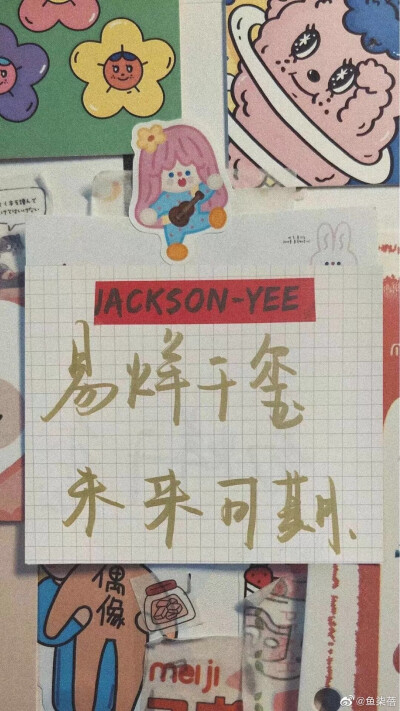 JACKSON-YEE
易烊千玺
未来可期、
偶像
meiji
@鱼柒蓓